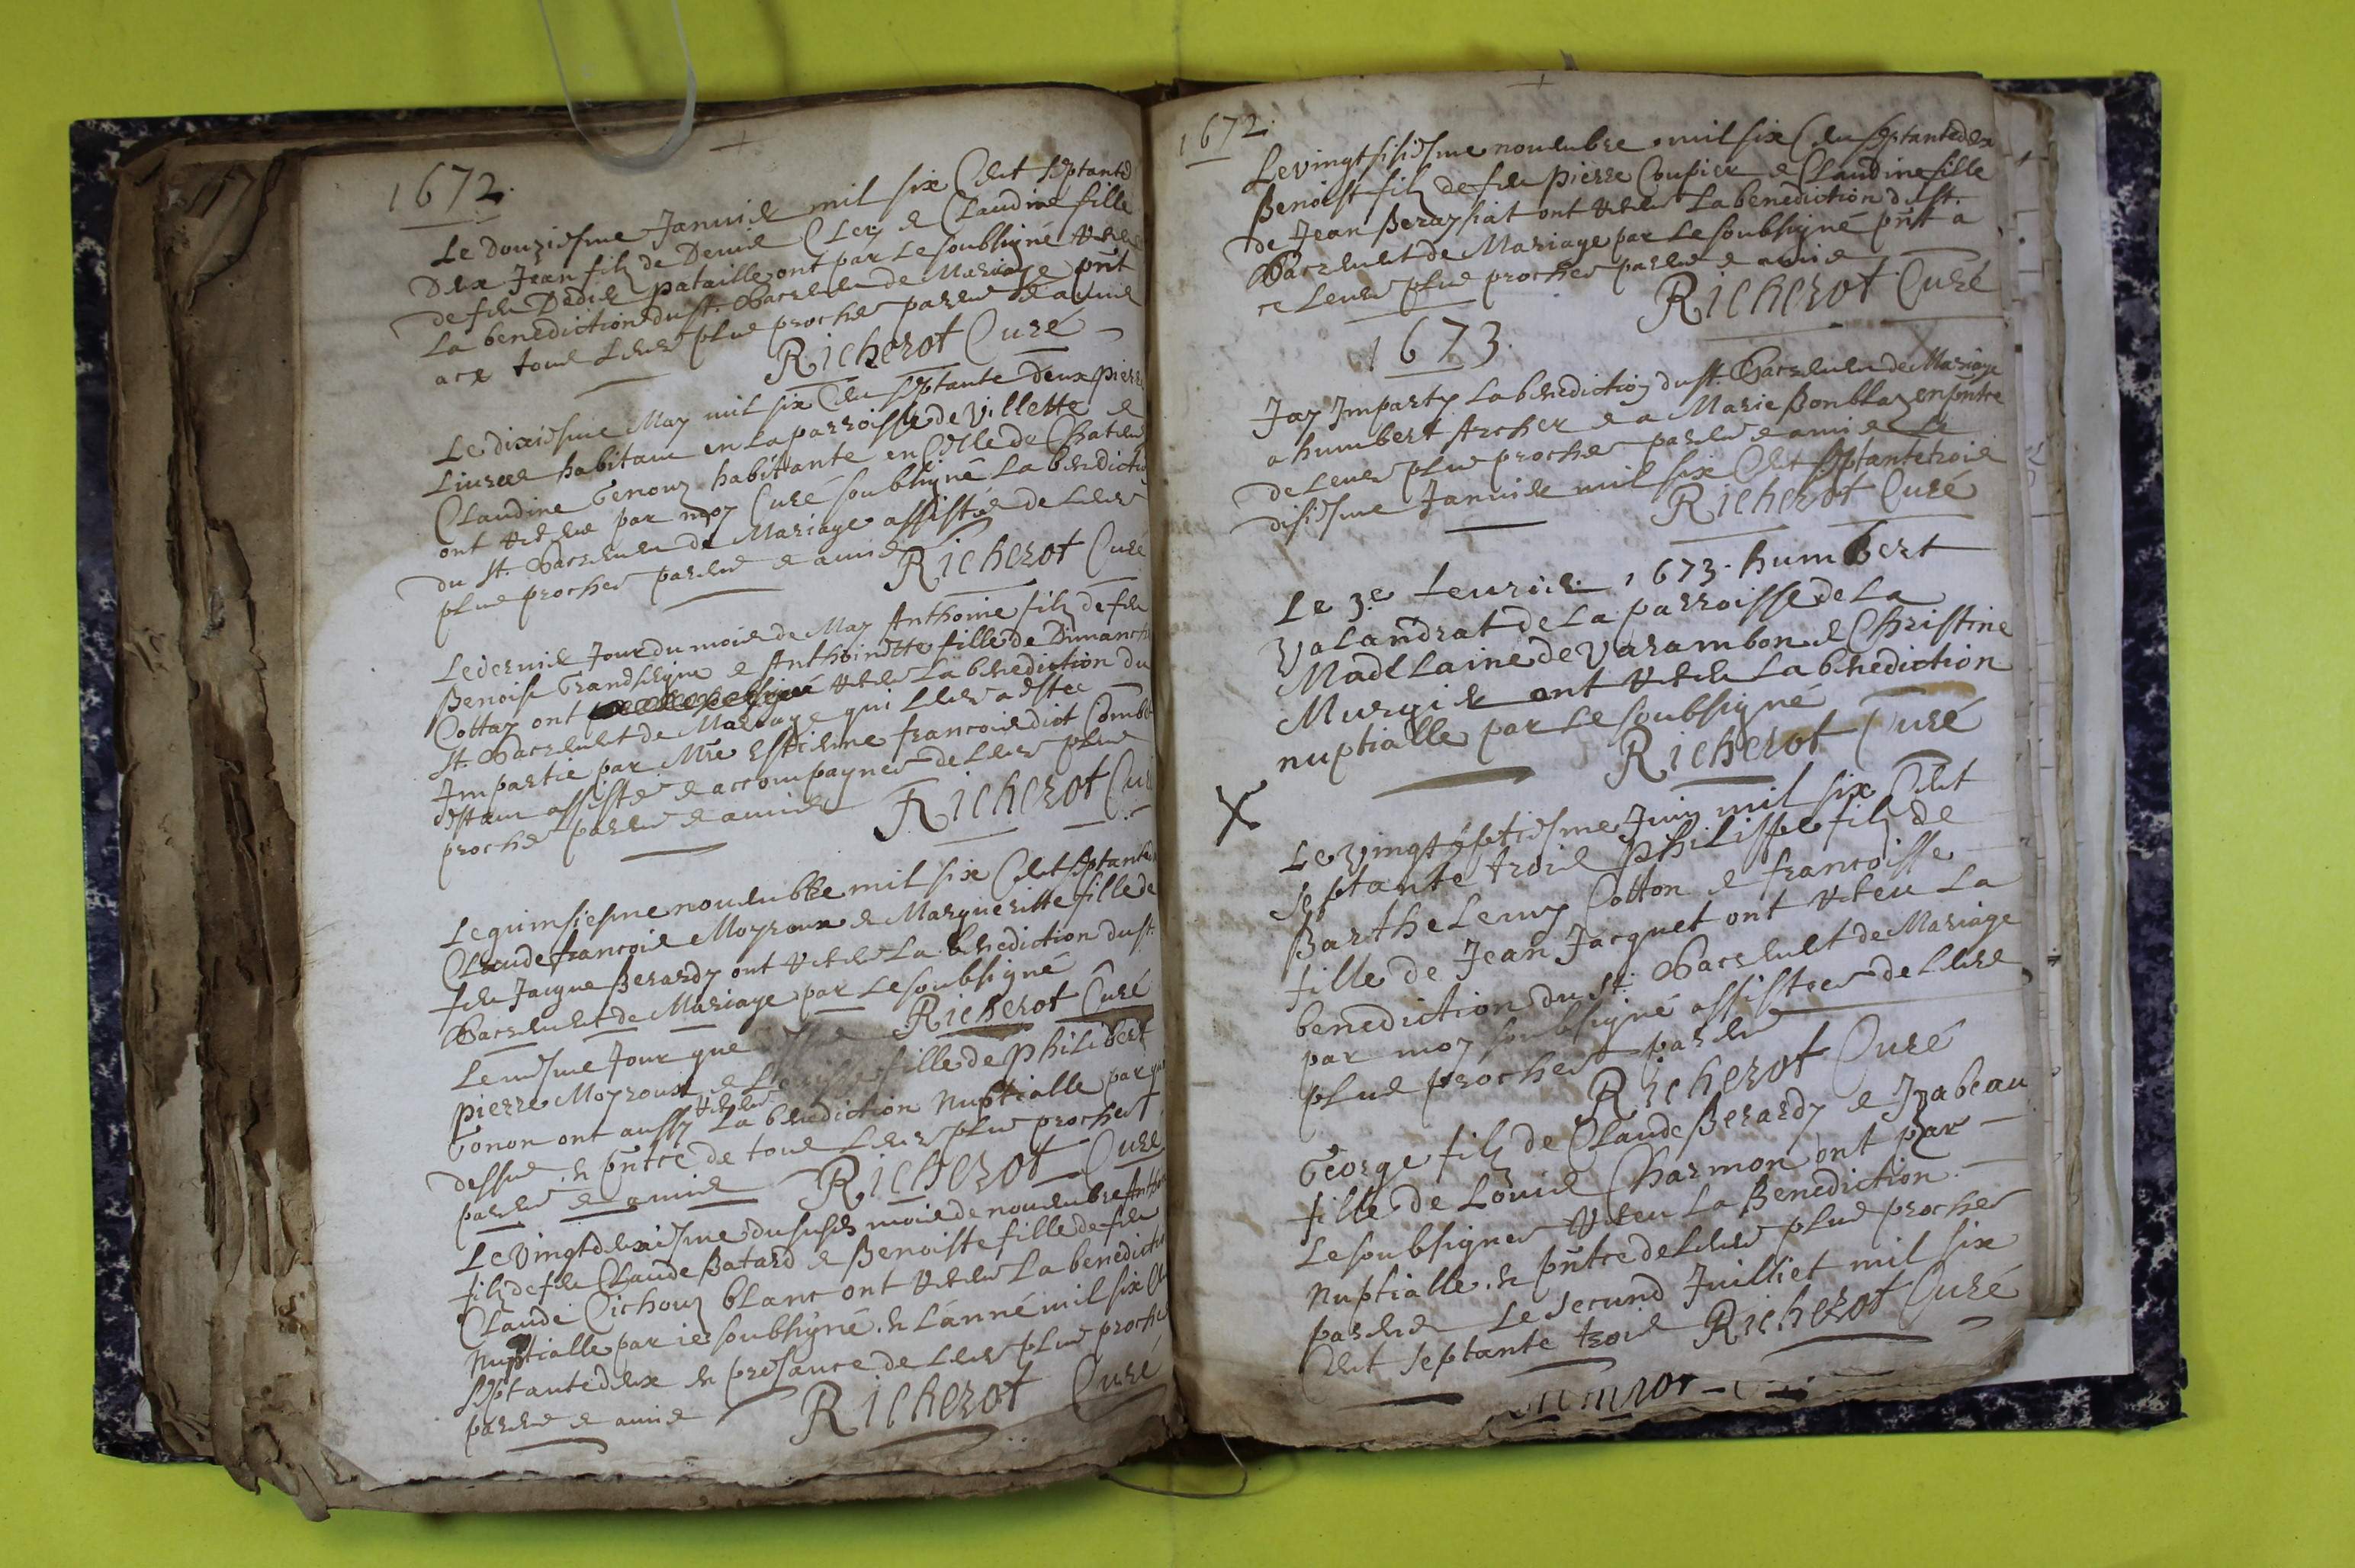 1672.
Le douziesme Janvier mil six Cent septante
deux Jean filz de Denis Clerj et Claudine fille
de feu Didier pataille ont par Le soubsigné receu
La benediction du st. Sacrement de Mariage pnt
a ce tous Leurs plus proches parens et amis
Richerot Curé
Le dixiesme May mil six Cens septante deux pierre
habitant en La parroisse de Villette et
Claudine Genouz habittante en Celle de Chaten
ont receu par moy Curé soubsigné La benediction
du st. Sacrement de Mariage assistés de Leurs
plus proches parens et amis
Richerot Curé
Le dernier Jour du mois de May Anthoine filz de feu
Benoist et Anthoinette fille de Dimanche
Cottaz ont receu La benediction du
st. Sacrement de Mariage qui Leur a estee
Impartie par Mre Estienne francois dict Combe
estant assistés et accompagnes de Leurs plus
proches parens et amis
Richerot Curé
Le quinsiesme novembre mil six Cent septante deux
Claude francois Moyroux et Margueritte fille de
feu Jacque Berardy ont receu La benediction du st.
Sacrement de Mariage par Le soubsigné
Richerot Curé
Le mesme Jour que
pierre Moyroux et fille de philibert
Gonon ont aussy receu La benediction Nuptialle par que
dessus en pntce de tous Leurs plus proches
parens et amis
Richerot Curé
Le Vingt deuxiesme du susd mois de novembre Anthoine
filz de feu Claude Batard et Benoiste fille de feu
Claude Cichouz blanc ont receu La benediction
Nuptialle par je soubsigné en L'année mil six Cens
septante deux en presance de Leurs plus proches
parens et amis
Richerot Curé
1672.
Le vingt sisiesme novembre mil six Cens septante deux
Benoist filz de feu pierre Coupier et Claudine fille
de Jean Berazsiat ont receu La benediction du st.
Sacrement de Mariage par Le soubsigné pnt a
ce Leurs plus proches parens et amis
Richerot Curé
1673.
Jay Imparty La benediction du st. Sacrement de Mariage
a humbert Archer et a Marie Bonblaz en pntce
de Leurs plus proches parens et amis Le
disiesme Janvier mil six Cent septante trois
Richerot Curé
Le 3e. fevrier 1673. humbert
Valandrat de La parroisse de La
Madelaine de Varambon et Christine
Murgier ont receu La benediction
nuptialle par Le soubsigné
Richerot Curé
X
Le vingt septiesme Juin mil six Cent
septante trois philippe filz de
Barthelemy Cotton et francoisse
fille de Jean Jacquet ont receu La
benediction du st. Sacrement de Mariage
par moy soubsigné assistees de Leurs
plus proches parens
Richerot Curé
George filz de Claude Berardy et Izabeau
fille de Louis Charmon ont par
Le soubsigner receu La Benediction
nuptialle en pntce de Leurs plus proches
parens Le second Juilliet mil six
Cent septante trois Richerot Curé